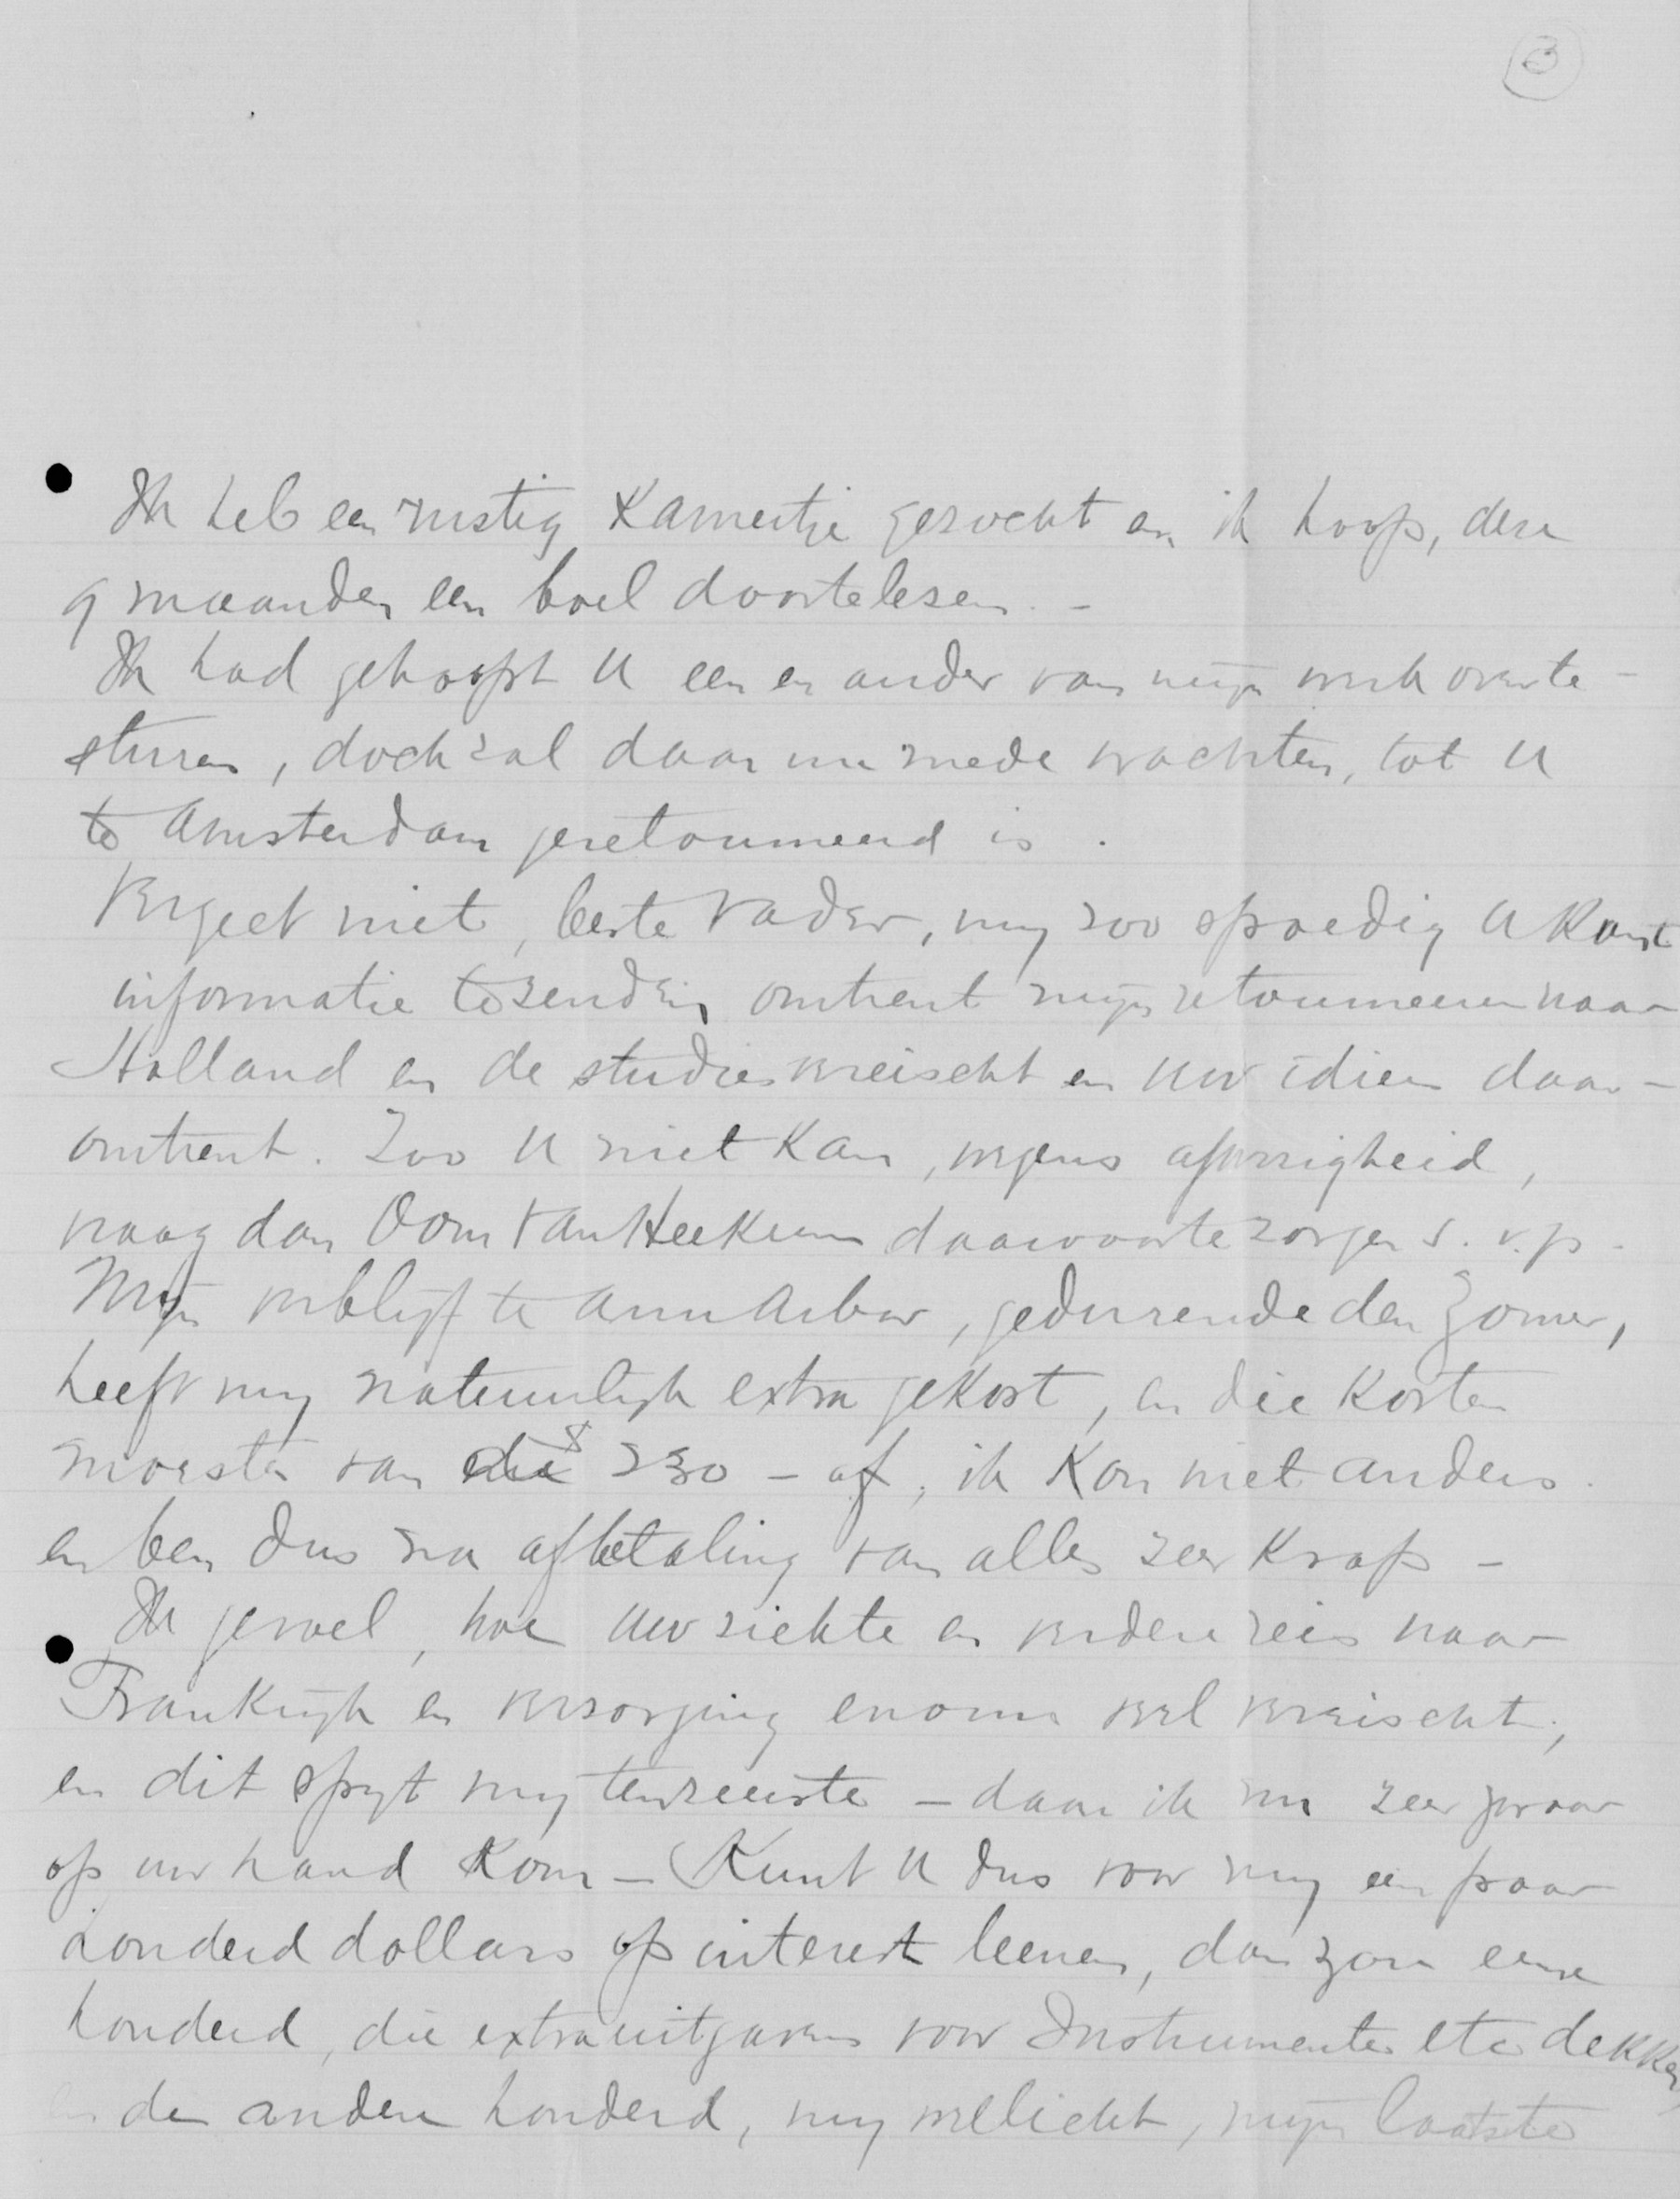 3
Ik heb een rustig Kamertje gezocht en ik hoop, deze
9 maanden een boel doortelezen. -
Ik had gehoopt U een en ander van mijn werk overte-
sturen, doch zal daar nu mede wachten, tot U
te Amsterdam geretourneerd is.
Vergeet niet, beste Vader, my zoo spoedig U Kunt
informatie tezenden omtrent mijn retourneeren naar
Holland en de studies vereischt en Uw idieen daar-
omtrent. Zoo U niet Kan, wegens afwezigheid,
vraag dan Oom van Heekeren daarvoorte zorgen s.v.p.
Mijn verblijf te Ann Arbor, gedurende den Zomer,
heeft my natuurlyk extra gekost, en die Kosten
moesten van die $ 230 - af, ik Kon niet anders.
en ben dus na afbetaling van alles zeer Krap -
Ik gevoel, hoe Uw ziekte en verdere reis naar
Frankryk en verzorging enorm veel vereischt,
en dit spyt my tenzeerste - daar ik nu zeer zwaar
op uw hand Kom - Kunt U dus voor my een paar
honderd dollars op interest leenen, dan zou eene
honderd, die extra uitgaven voor Instrumenten etc dekken
en de andere honderd, my wellicht, mijn laatste